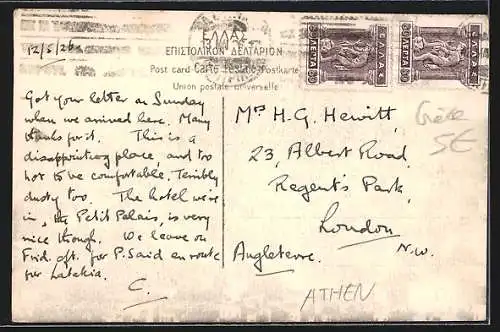 12/5/26
ΕΛΛΑΣ
ΕΠΙΣΤΟΛΙΚΟΝ ΔΕΛΤΑΡΙΟΝ
Post card Carte postale Postkarte
Union postale universelle
80 ΛΕΠΤΑ 80
ΕΛΛΑΣ
80 ΛΕΠΤΑ 80
ΕΛΛΑΣ
Got your letter on Sunday
when we arrived here. Many
thanks for it. This is a
disappointing place, and too
hot to be comfortable. Terribly
dusty too. The hotel we're
in, the Petit Palais, is very
nice though. We leave on
Frid. aft. for P. Said en route
for Latakia.
C.
Mrs H-G. Hewitt,
23, Albert Road,
Regent's Park,
London
N.W.
Angleterre.
5€
ATHEN